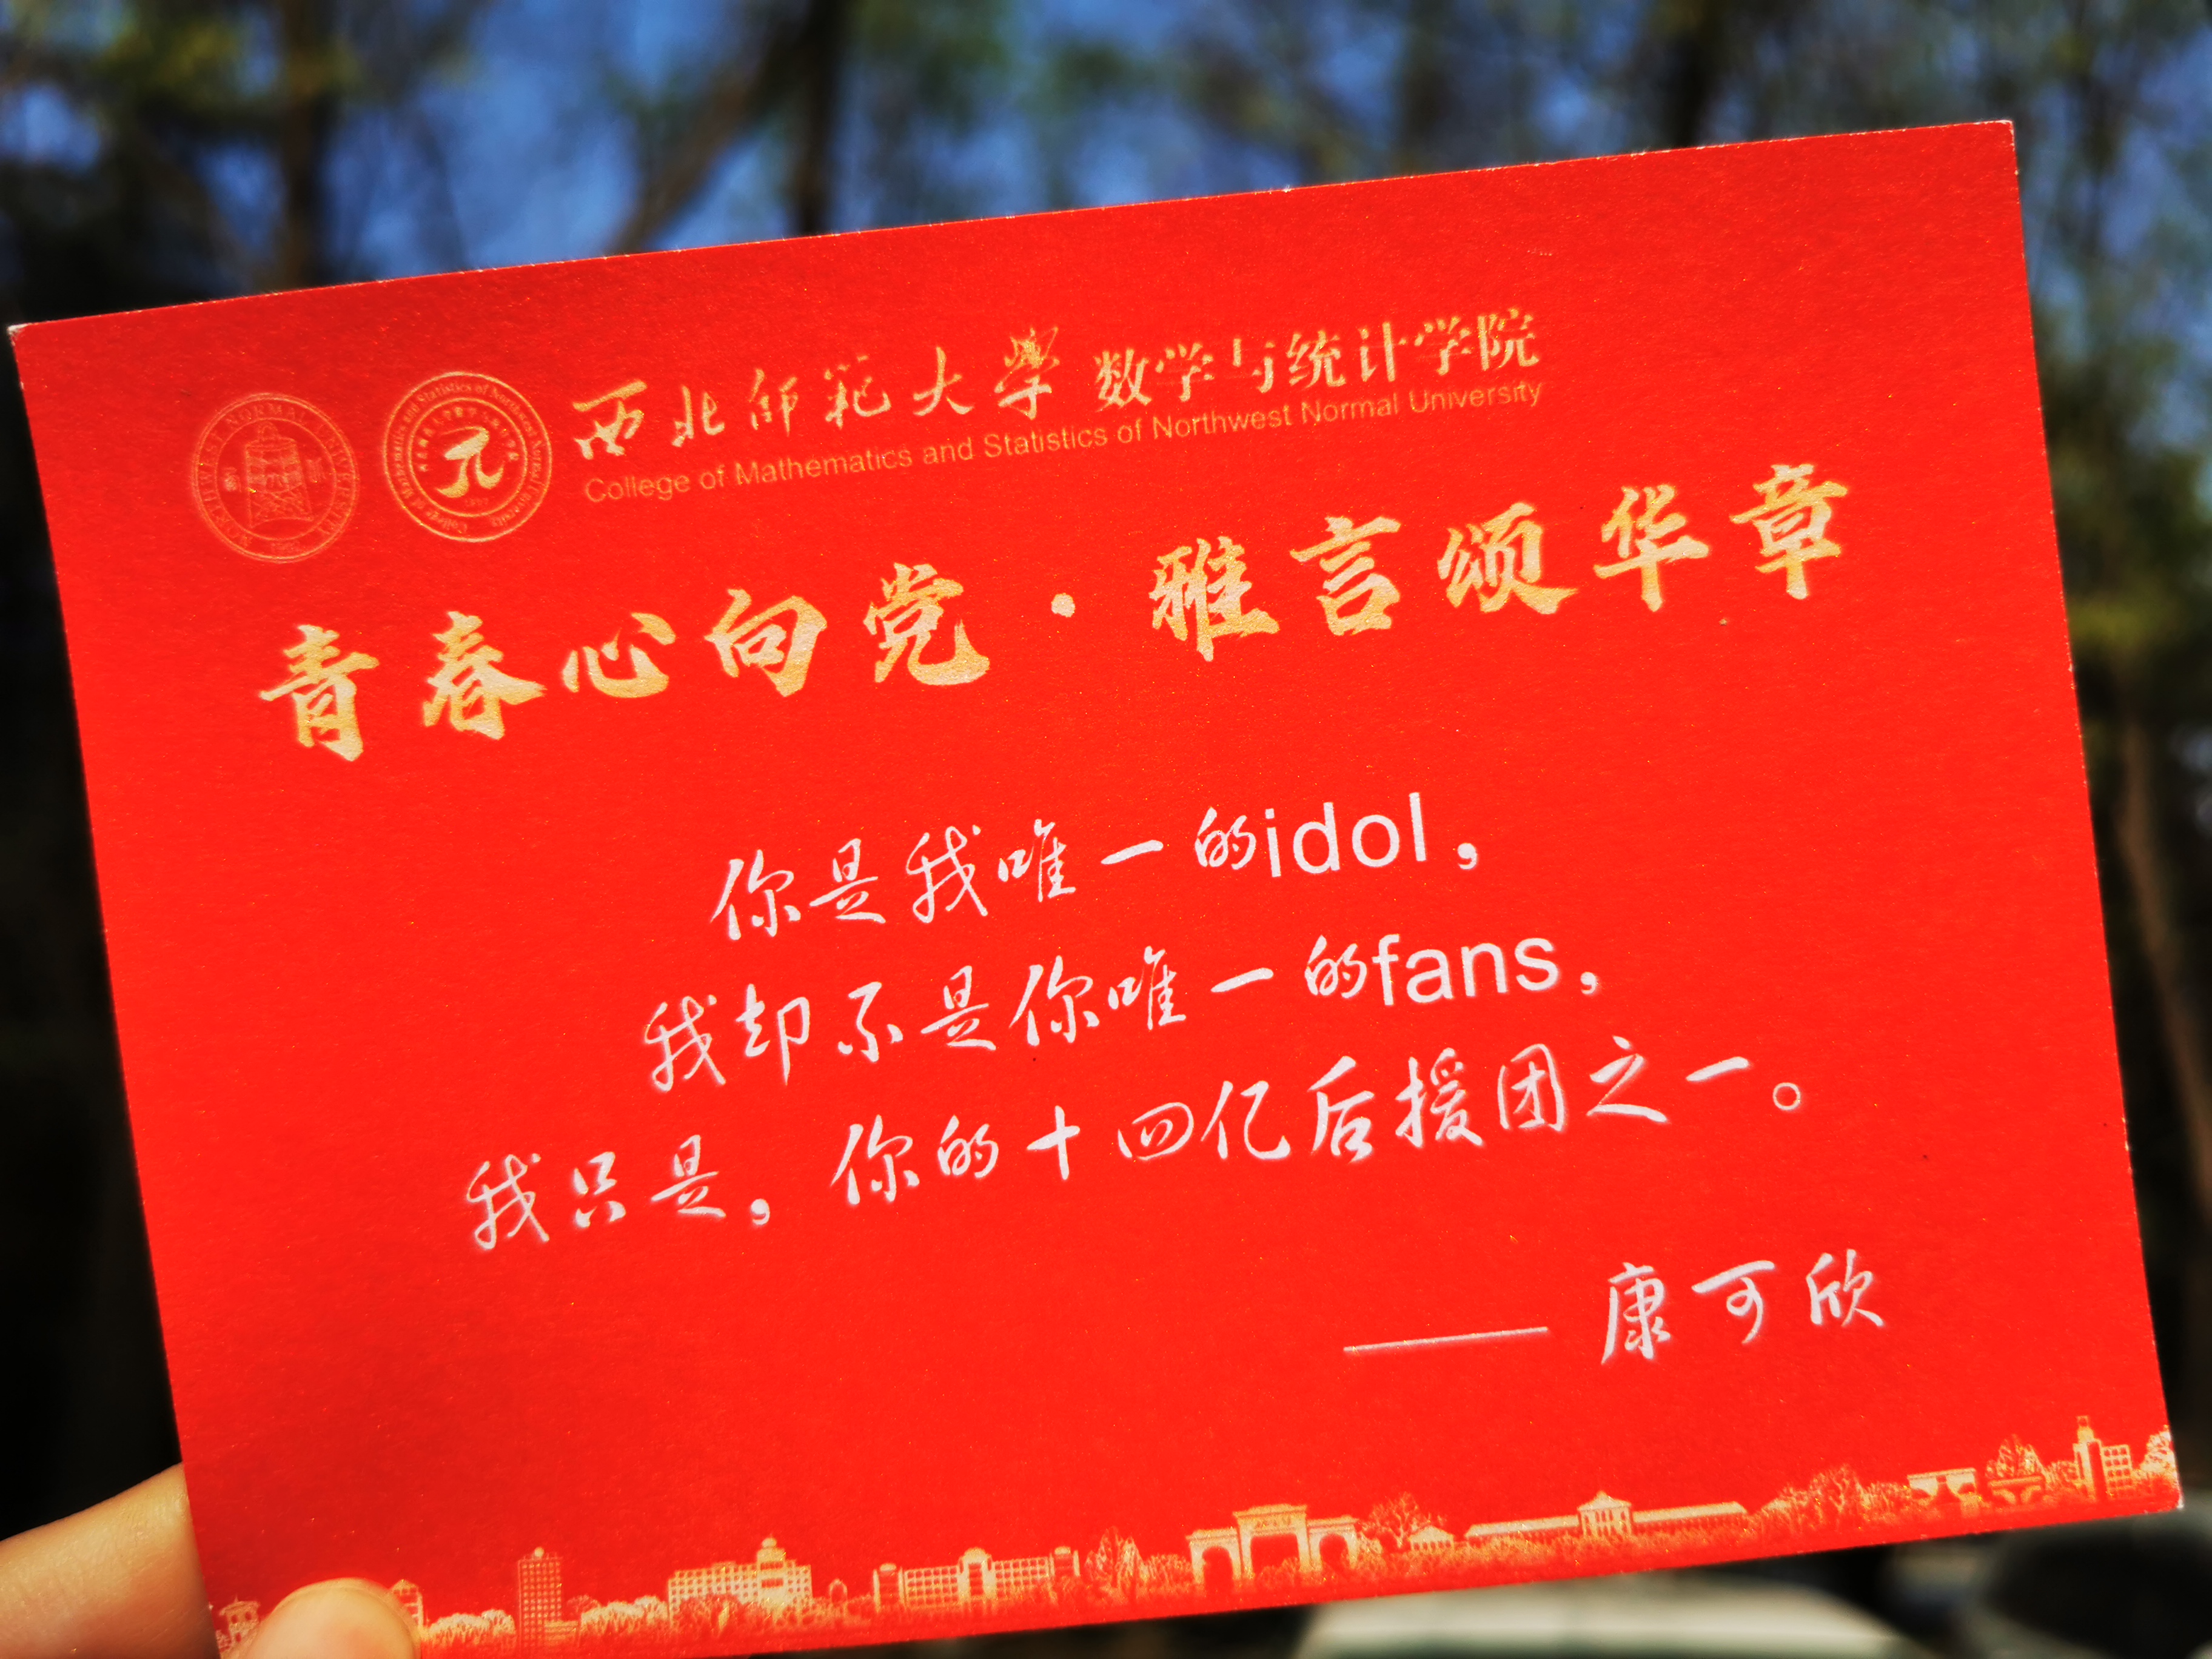 西北师范大学 数学与统计学院
College of Mathematics and Statistics of Northwest Normal University
青春心向党·雅言颂华章
你是我唯一的idol，
我却不是你唯一的fans，
我只是，你的十四亿后援团之一。
—— 康可欣